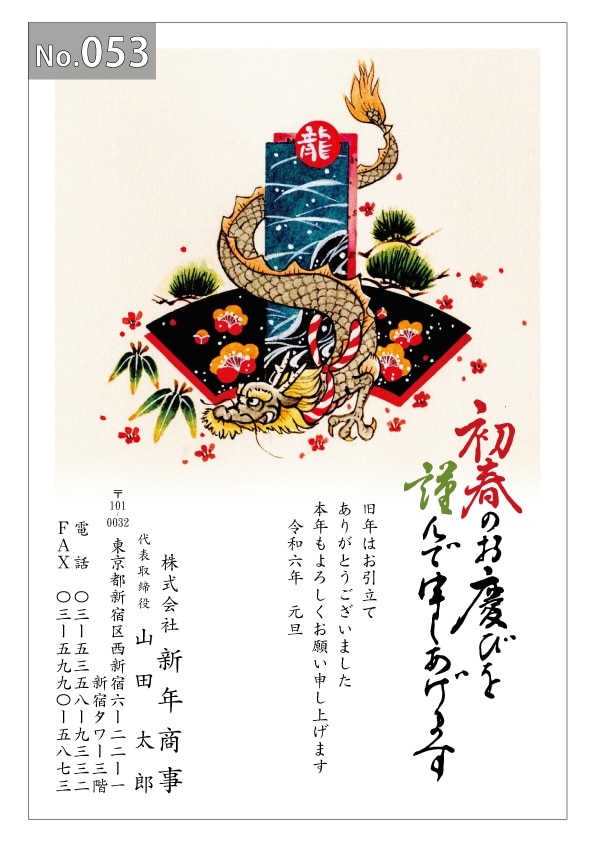 No.053
龍
初春のお慶びを
謹んで申しあげます
旧年はお引立て
ありがとうございました
本年もよろしくお願い申し上げます
令和六年 元旦
株式会社 新年商事
代表取締役 山田 太郎
〒101-0032 東京都新宿区西新宿六ー二二ー一
新宿タワー三階
電話 〇三ー五三五八ー九三三二
FAX 〇三ー五九九〇ー五八七三